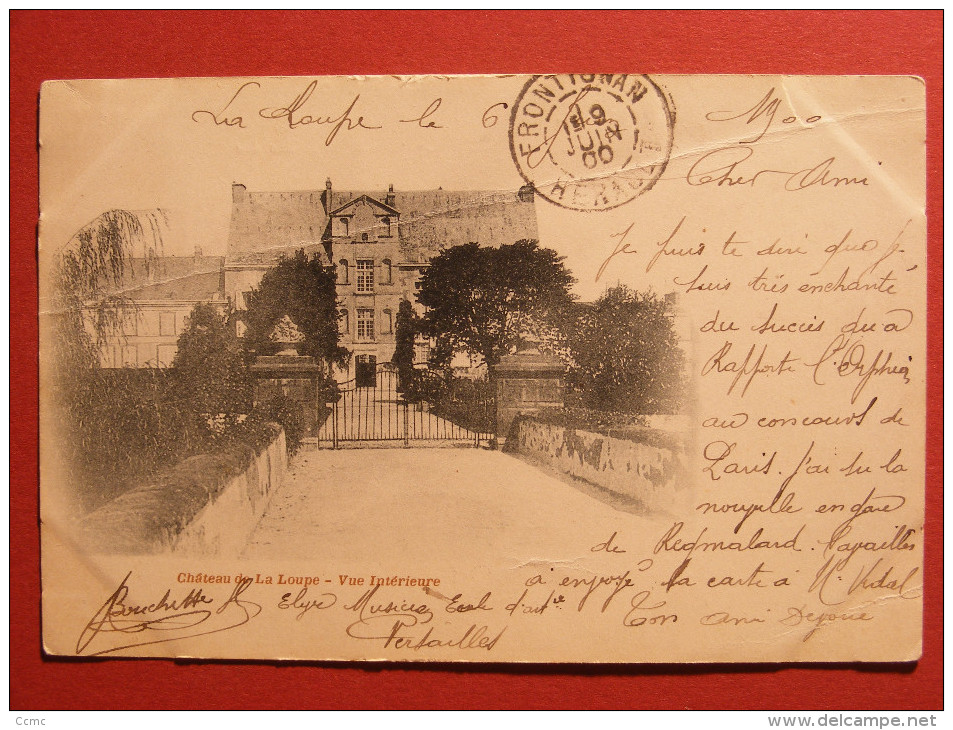 La Loupe le 6 Juin 1900
FRONTIGNAN
19
JUIN
00
HERAULT
Cher Ami
Je puis te dire que je
suis très enchanté
du succès qu'a
Rapporté l'Orphéon
au concours de
Paris. J'ai su la
nouvelle en gare
de Regmalard. Cavaillès
a envoyé la carte à Mr Vidal
Ton ami Dejoue
Château de La Loupe - Vue Intérieure
Bouchette
Elève Musicien Ecole d'artie
Versailles
Ccmc
www.delcampe.net